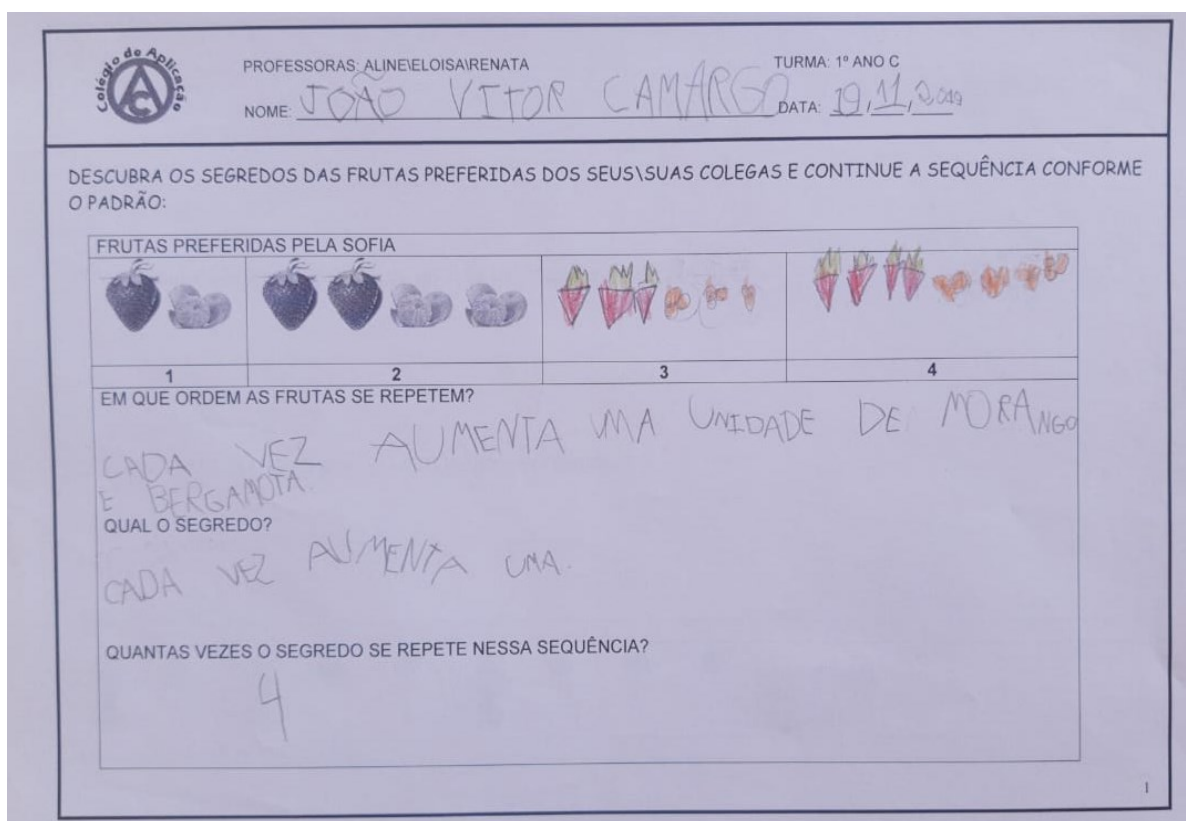 Colégio de Aplicação
AC
PROFESSORAS: ALINE\ELOISA\RENATA TURMA: 1º ANO C
NOME: JOÃO VITOR CAMARGO DATA: 19/11/2019
DESCUBRA OS SEGREDOS DAS FRUTAS PREFERIDAS DOS SEUS\SUAS COLEGAS E CONTINUE A SEQUÊNCIA CONFORME
O PADRÃO:
FRUTAS PREFERIDAS PELA SOFIA
1 2 3 4
EM QUE ORDEM AS FRUTAS SE REPETEM?
CADA VEZ AUMENTA UMA UNIDADE DE MORANGO
E BERGAMOTA.
QUAL O SEGREDO?
CADA VEZ AUMENTA UMA.
QUANTAS VEZES O SEGREDO SE REPETE NESSA SEQUÊNCIA?
4
1